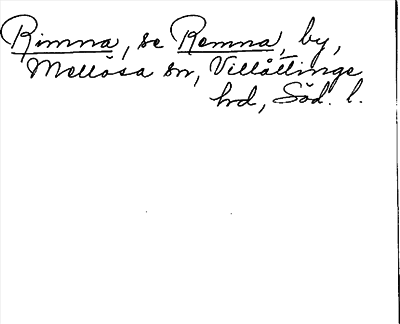 Rimna, se Remna, by,
Mellösa sn, Villåttinge
hd, Söd. l.